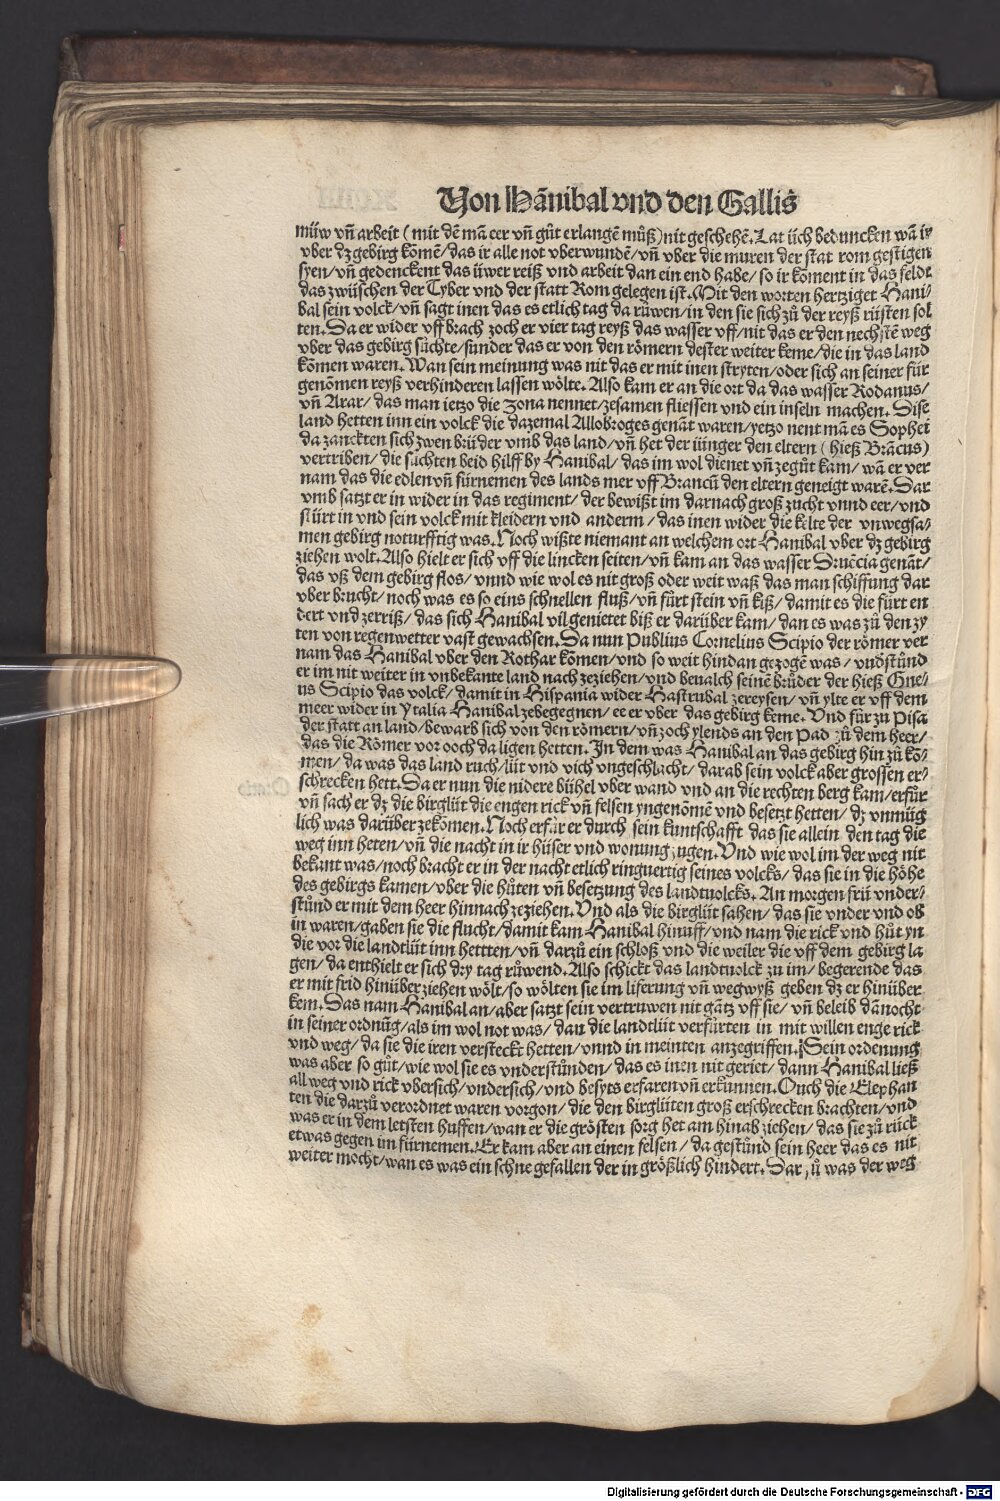 Von Hānibal vnd den Gallis
müw vñ arbeit ( mit dē mā eer vñ gůt erlangē můß) nit geschehē. Lat üch beduncken wā ir
vber dz gebirg kōmē/das ir alle not vberwundē/vñ vber die muren der stat rom gestigen
syen/vñ gedenckent das üwer reiß vnd arbeit dan ein end habe/so ir kōment in das feldt
das zwüschen der Tyber vnd der statt Rom gelegen ist. Mit den worten hertziget Hani/
bal sein volck/vñ sagt inen das es etlich tag da růwen/in den sie sich zů der reyß rüsten sol
ten. Da er wider vff brach zoch er vier tag reyß das wasser vff/nit das er den nechstē weg
vber das gebirg sůchte/sunder das er von den römern dester weiter keme/die in das land
kōmen waren. Wan sein meinung was nit das er mit inen stryten/oder sich an seiner für
genōmen reyß verhinderen lassen wölte. Also kam er an die ort da das wasser Rodanus/
vñ Arar/das man ietzo die Zona nennet/zesamen fliessen vnd ein inseln machen. Dise
land hetten inn ein volck die dazemal Allobroges genāt waren/yetzo nent mā es Sophei
da zanckten sich zwen brüder vmb das land/vñ het der iünger den eltern ( hieß Brācus)
vertriben/die sůchten beid hilff by Hanibal/das im wol dienet vñ zegůt kam/wā er ver
nam das die edlen vñ fürnemen des lands mer vff Brancū den eltern geneigt warē. Dar
vmb satzt er in wider in das regiment/der bewißt im darnach groß zucht vnnd eer/vnd
stürt in vnd sein volck mit kleidern vnd anderm/das inen wider die kelte der vnwegsa/
men gebirg noturfftig was. Noch wißte niemant an welchem ort Hanibal vber dz gebirg
ziehen wolt. Also hielt er sich vff die lincken seiten/vñ kam an das wasser Druēcia genāt/
das vß dem gebirg flos/vnnd wie wol es nit groß oder weit waß das man schiffung dar
vber brucht/noch was es so eins schnellen fluß/vñ fürt stein vñ kiß/damit es die fürt en
dert vnd zerriß/das sich Hanibal vil genietet biß er darüber kam/dan es was zů den zy
ten von regenwetter vast gewachsen. Da nun Publius Cornelius Scipio der römer ver
nam das Hanibal vber den Rothar kōmen/vnd so weit hindan gezogē was/vnd stůnd
er im nit weiter in vnbekante land nach zeziehen/vnd beualch seinē brůder der hieß Gne/
us Scipio das volck/damit in Hispania wider Hastrubal zereysen/vñ ylte er vff dem
meer wider in Ytalia Hanibal zebegegnen/ee er vber das gebirg keme. Vnd für zu Pisa
der statt an land/bewarb sich von den römern/vñ zoch ylends an den Pad zů dem heer/
das die Römer vor ooch da ligen hetten. In dem was Hanibal an das gebirg hin zů kō/
men/da was das land ruch/lüt vnd vich vngeschlacht/darab sein volck aber grossen er/
schrecken hett. Da er nun die nidere bühel vber wand vnd an die rechten berg kam/erfůr
vñ sach er dz die birglüt die engen rick vñ felsen yngenōmē vnd besetzt hetten/dz vnmüg
lich was darüber zekōmen. Noch erfůr er durch sein kuntschafft das sie allein den tag die
weg inn heten/vñ die nacht in ir hüser vnd wonung zugen. Vnd wie wol im der weg nit
bekant was/noch bracht er in der nacht etlich ringuertig seines volcks/das sie in die höhe
des gebirgs kamen/vber die hůten vñ besetzung des landtuolcks. An morgen frü vnder/
stůnd er mit dem heer hinnach zeziehen. Vnd als die birglüt sahen/das sie vnder vnd ob
in waren/gaben sie die flucht/damit kam Hanibal hinuff/vnd nam die rick vnd hůt yn
die vor die landtlüt inn hettten/vñ darzů ein schloß vnd die weiler die vff dem gebirg la
gen/da enthielt er sich dry tag růwend. Also schickt das landtuolck zu im/begerende das
er mit frid hinüber ziehen wölt/so wölten sie im liferung vñ wegwyß geben dz er hinüber
kem. Das nam Hanibal an/aber satzt sein vertruwen nit gātz vff sie/vñ beleib dānocht
in seiner ordnūg/als im wol not was/dan die landtlüt verfürten in mit willen enge rick
vnd weg/da sie die iren versteckt hetten/vnnd in meinten anzegriffen. Sein ordenung
was aber so gůt/wie wol sie es vnderstůnden/das es inen nit geriet/dann Hanibal ließ
all weg vnd rick vbersich/vndersich/vnd besyts erfaren vñ erkunnen. Ouch die Elephan
ten die darzů verordnet waren vorgon/die den birglüten groß erschrecken brachten/vnd
was er in dem letsten huffen/wan er die grösten sorg het am hinab ziehen/das sie zů rück
etwas gegen im fürnemen. Er kam aber an einen felsen/da gestůnd sein heer das es nit
weiter mocht/wan es was ein schne gefallen der in größlich hindert. Darzů was der weg
Digitalisierung gefördert durch die Deutsche Forschungsgemeinschaft - DFG